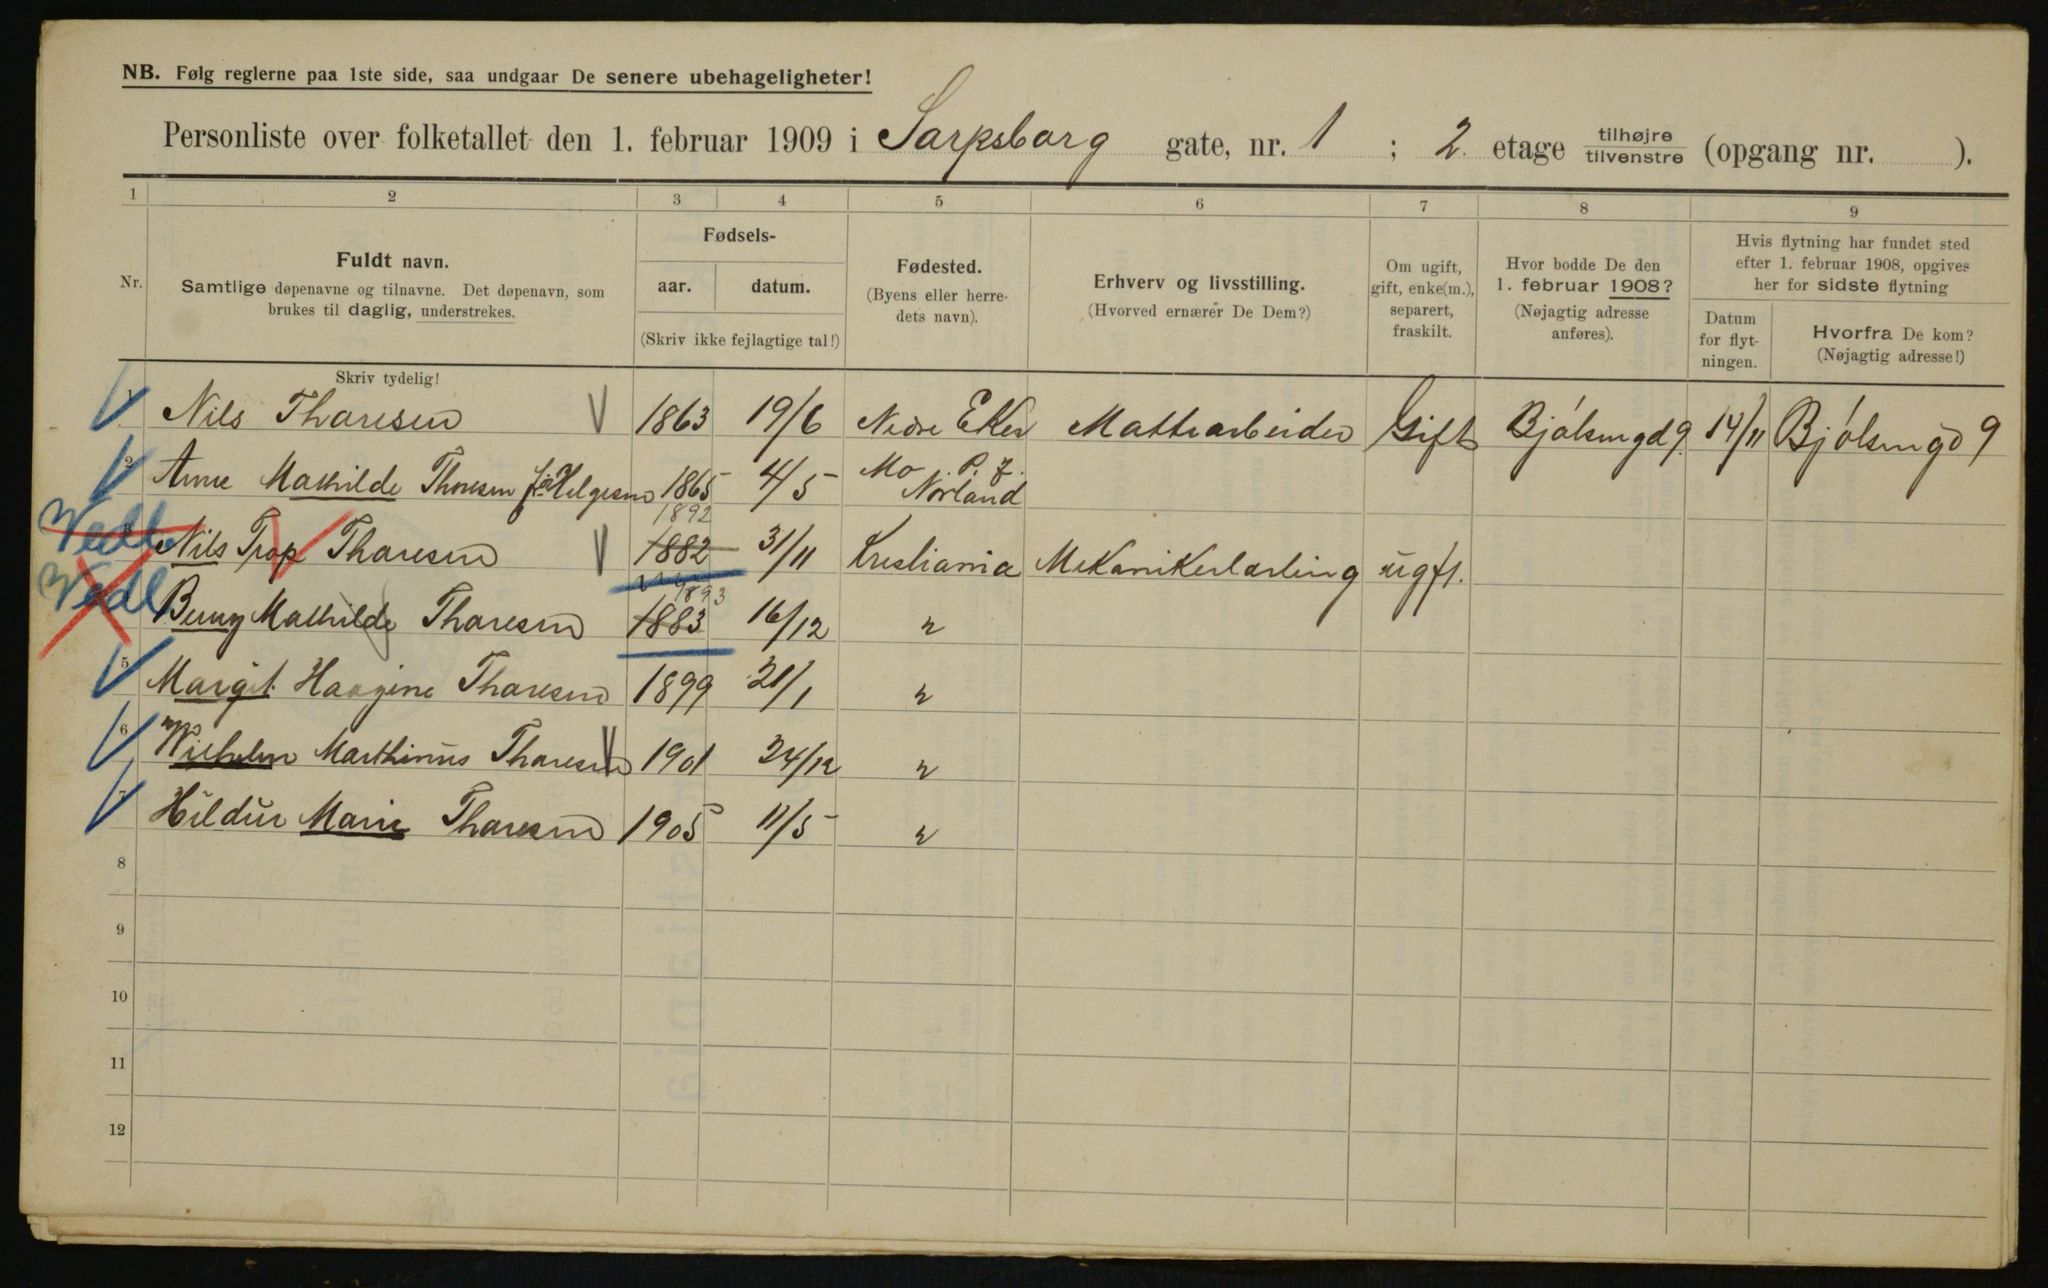 NB. Følg reglerne paa 1ste side, saa undgaar De senere ubehageligheter!
Personliste over folketallet den 1. februar 1909 i Sarpsborg gate, nr. 1 ; 2 etage tilhøjre tilvenstre (opgang nr. ).
1 2 3 4 5 6 7 8 9
Nr.
Fuldt navn.
Samtlige døpenavne og tilnavne. Det døpenavn, som
brukes til daglig, understrekes.
Skriv tydelig!
Fødsels-
aar. datum.
(Skriv ikke fejlagtige tal!)
Fødested.
(Byens eller herre-
dets navn).
Erhverv og livsstilling.
(Hvorved ernærer De Dem?)
Om ugift,
gift, enke(m.),
separert,
fraskilt.
Hvor bodde De den
1. februar 1908?
(Nøjagtig adresse
anføres).
Hvis flytning har fundet sted
efter 1. februar 1908, opgives
her for sidste flytning
Datum
for flyt-
ningen.
Hvorfra De kom?
(Nøjagtig adresse!)
1 Nils Thoresen 1863 19/6 Nedre Eker Gift Bjølsengd 9. 14/11 Bjølsengd 9
2 Anne Mathilde Thoresen f. Helgesen 1865 4/5 Mo Norland
3 Nils Thoresen 1882 1892 31/11 Kristiania Mekanikerlærling ugft.
4 Mathilde Thoresen 1883 1893 16/12 "
5 Margit Thoresen 1899 21/1 "
6 Wilhelm Marthinus Thoresen 1901 24/12 "
7 Hildur Marie Thoresen 1905 11/5 "
8
9
10
11
12